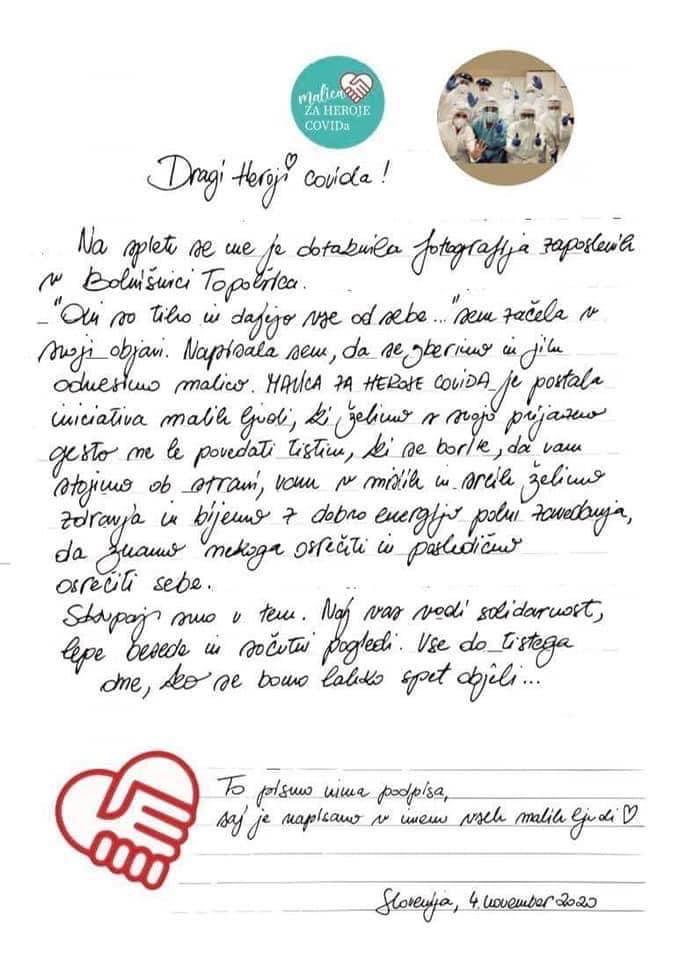 malica
ZA HEROJE
COVIDa
Dragi Heroji covida!
Na spletu se me je dotaknila fotografija zaposlenih
v Bolnišnici Topolšica.
- "Oni so tiho in dajejo vse od sebe..." sem začela v
svoji objavi. Napisala sem, da se zberimo in jim
odnesimo malico. MALICA ZA HEROJE COVIDA je postala
iniciativa malih ljudi, ki želimo s svojo prijazno
gesto ne le povedati tistim, ki se bori/te, da vam
stojimo ob strani, vam v mislih in srcih želimo
zdravja in bijemo z dobro energijo polni zavedanja,
da znamo nekoga osrečiti in posledično
osrečiti sebe.
Skupaj smo v tem. Naj vas vodi solidarnost,
lepe besede in sočutni pogledi. Vse do tistega
dne, ko se bomo lahko spet objeli...
To pismo nima podpisa,
saj je napisano v imenu vseh malih ljudi ♡
Slovenija, 4. november 2020